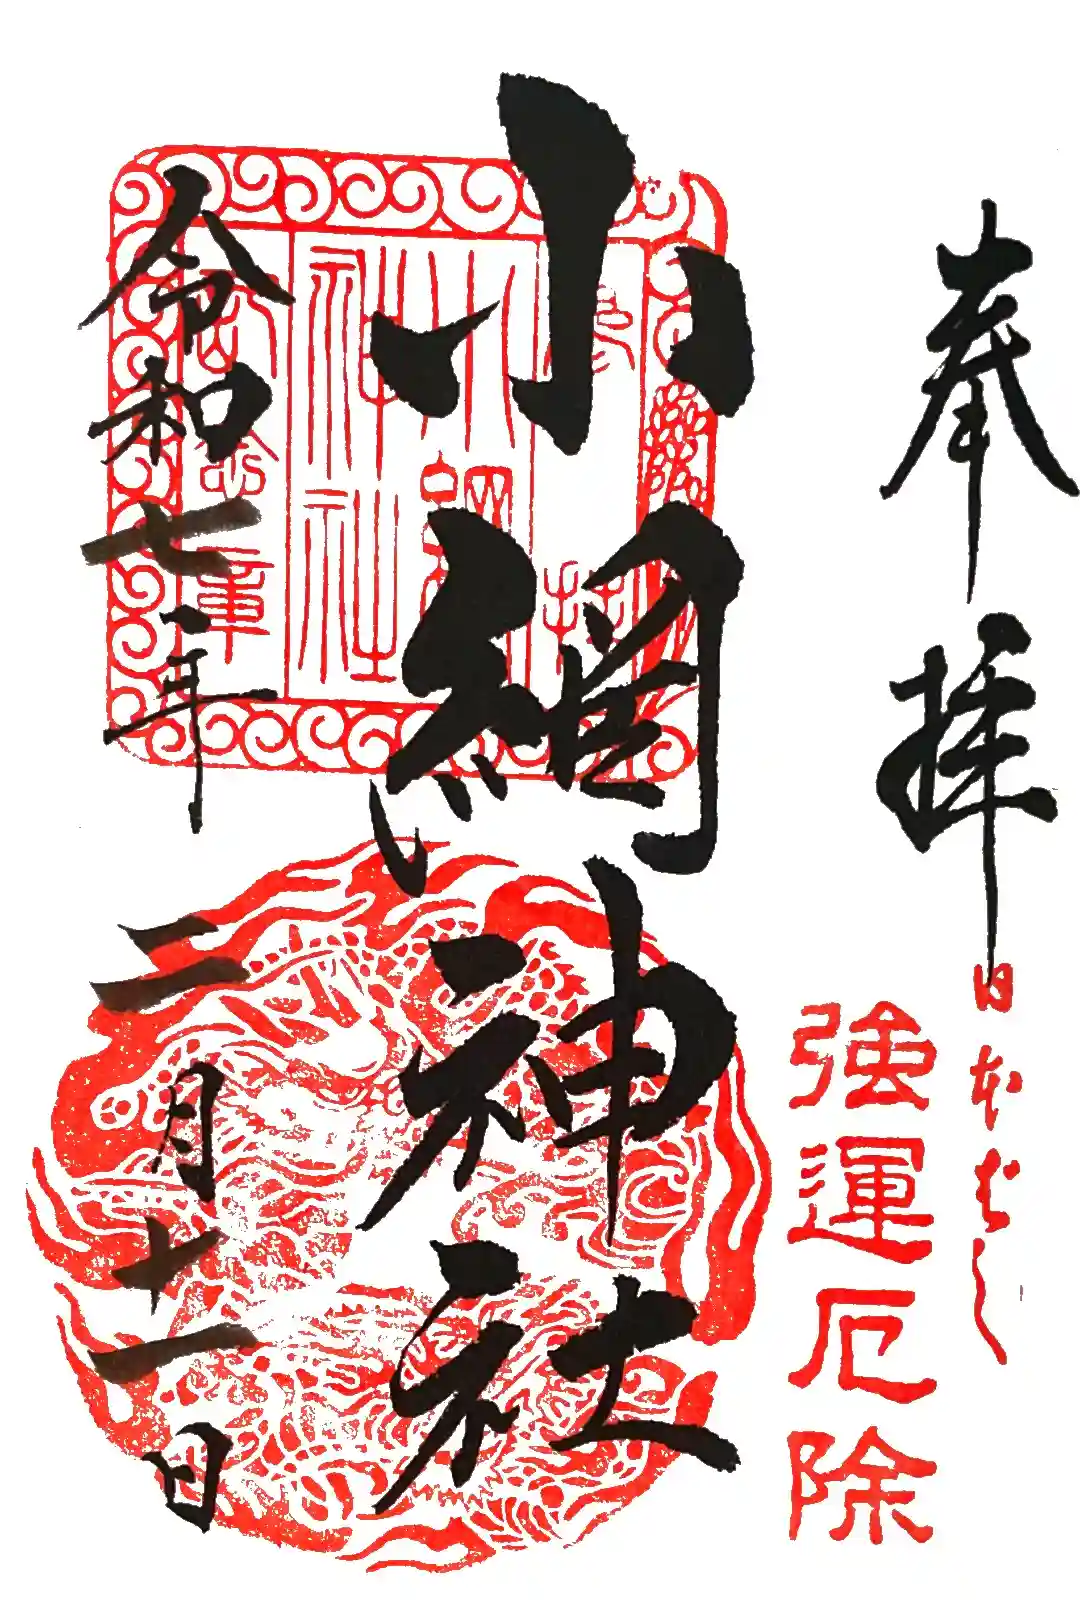 奉拝
日本ばし
強運厄除
小網神社
小網神社
令和七年二月十一日